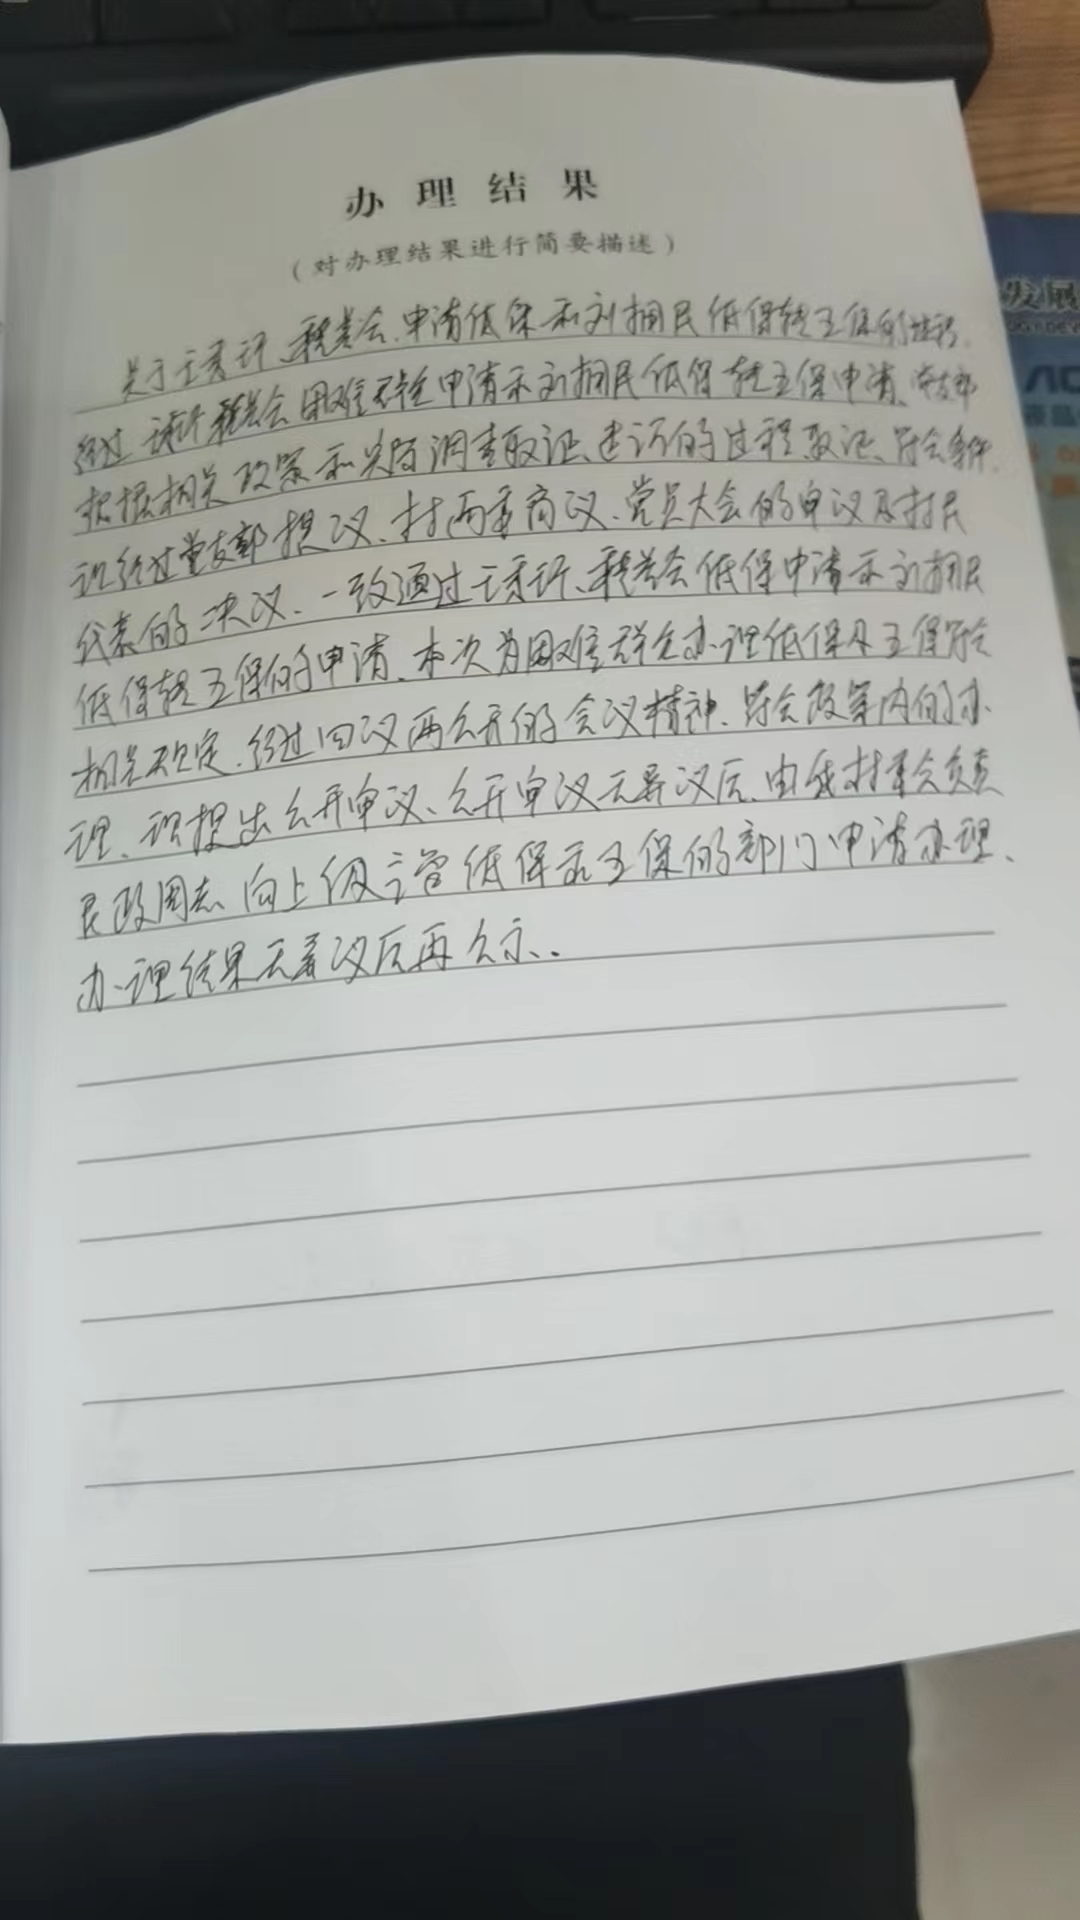 办理结果
(对办理结果进行简要描述)
关于王 、 会、申请低保和刘拥民低保转五保的
经过 会困难 申请和刘拥民低保转五保申请、党支部
根据相关政策和实际调查取证、走访的过程取证、符合条件、
现经过党支部提议、村两委商议、党员大会的审议及村民
代表的决议、一致通过王 、 会低保申请和刘拥民
低保转五保的申请、本次为困难群众办理低保及五保符合
相关规定、经过四议两公开的会议精神、符合政策内的办
理、现提出公开审议、公开审议无异议后、由我村委会负责
民政同志、向上级主管低保和五保的部门申请办理、
办理结果无异议后再公示、.
发展